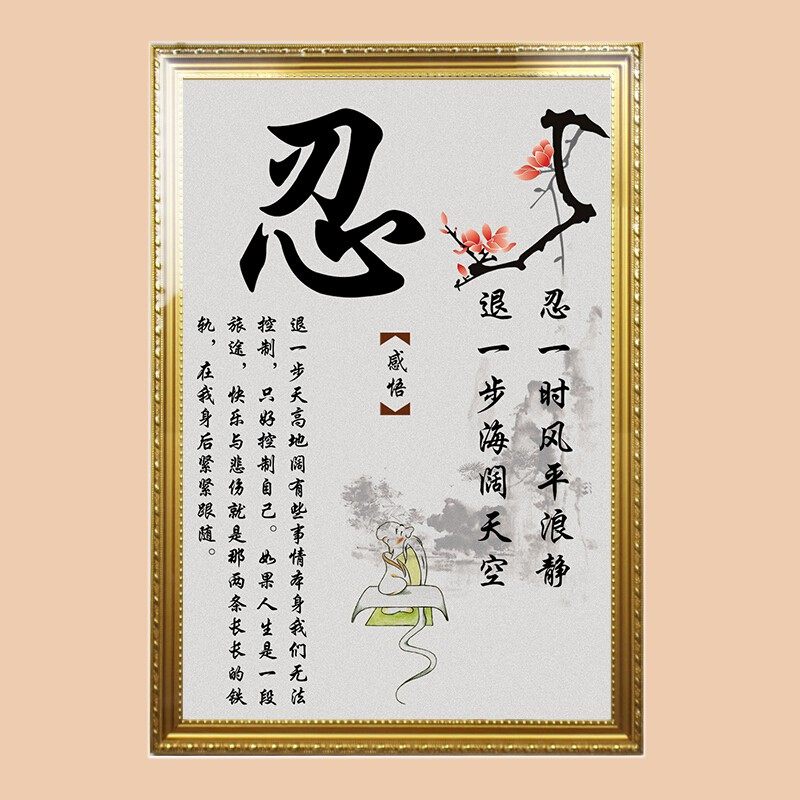 忍
忍一时风平浪静
退一步海阔天空
【感悟】
退一步天高地阔有些事情本身我们无法
控制，只好控制自己。如果人生是一段
旅途，快乐与悲伤就是那两条长长的铁
轨，在我身后紧紧跟随。